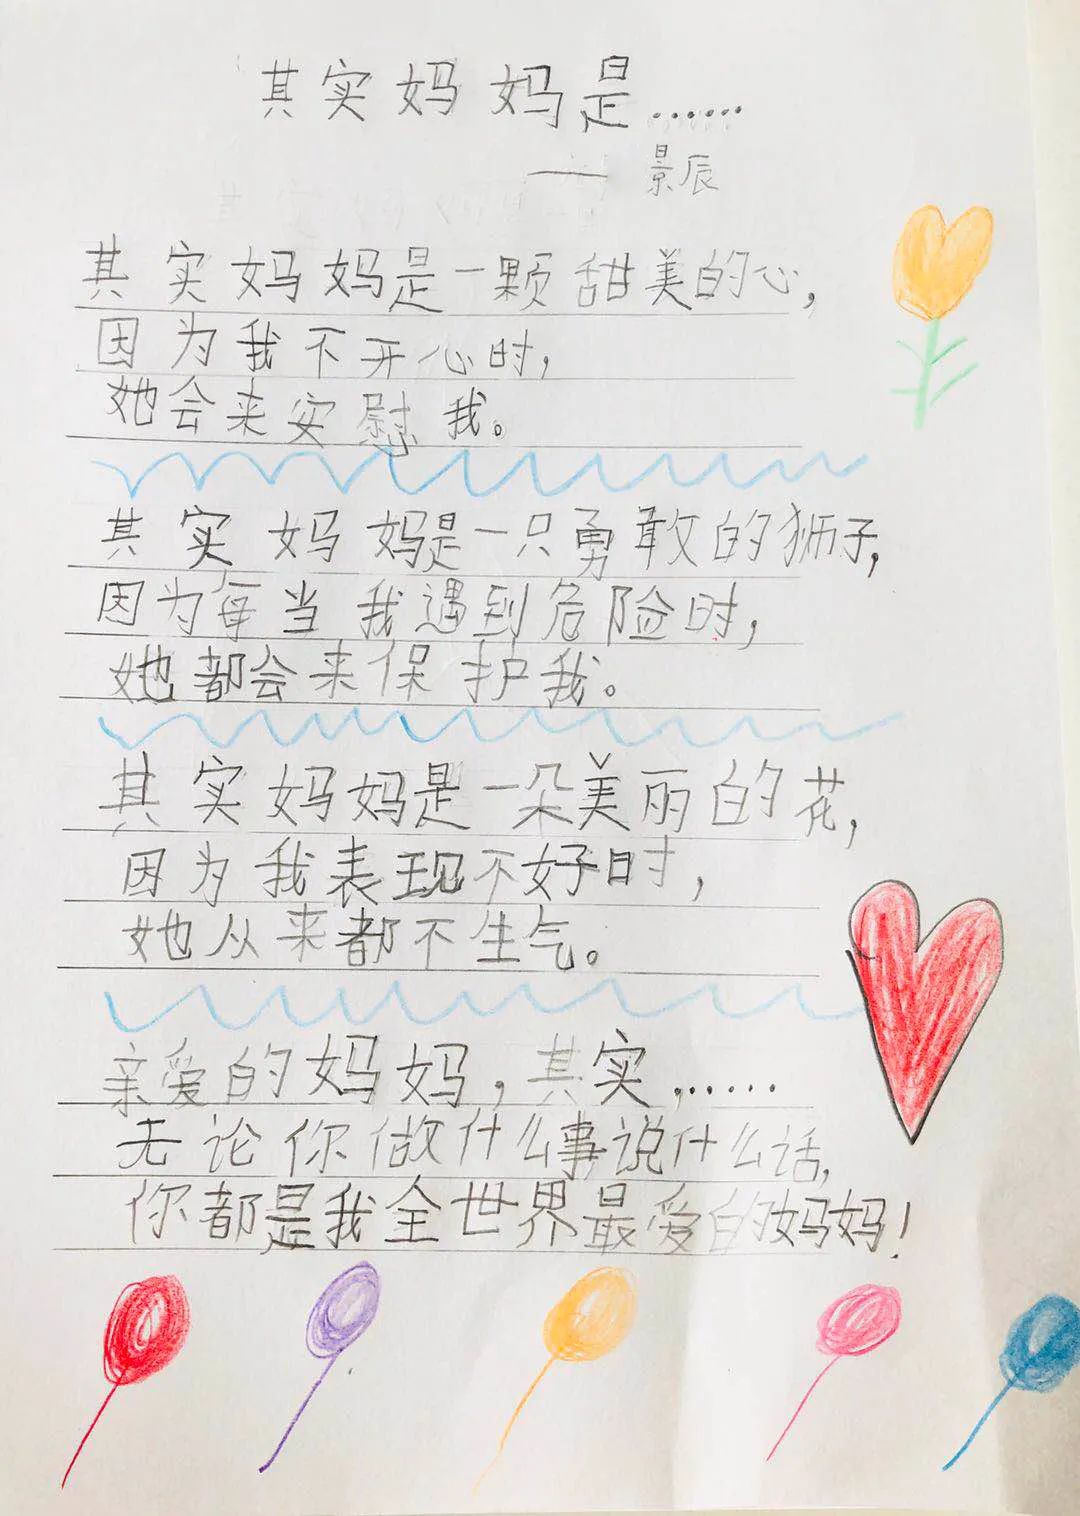 其实妈妈是......
——景辰
其实妈妈是一颗甜美的心,
因为我不开心时,
她会来安慰我。
其实妈妈是一只勇敢的狮子,
因为每当我遇到危险时,
她都会来保护我。
其实妈妈是一朵美丽的花,
因为我表现不好时,
她从来都不生气。
亲爱的妈妈,其实......
无论你做什么事,说什么话,
你都是我全世界最爱的妈妈!